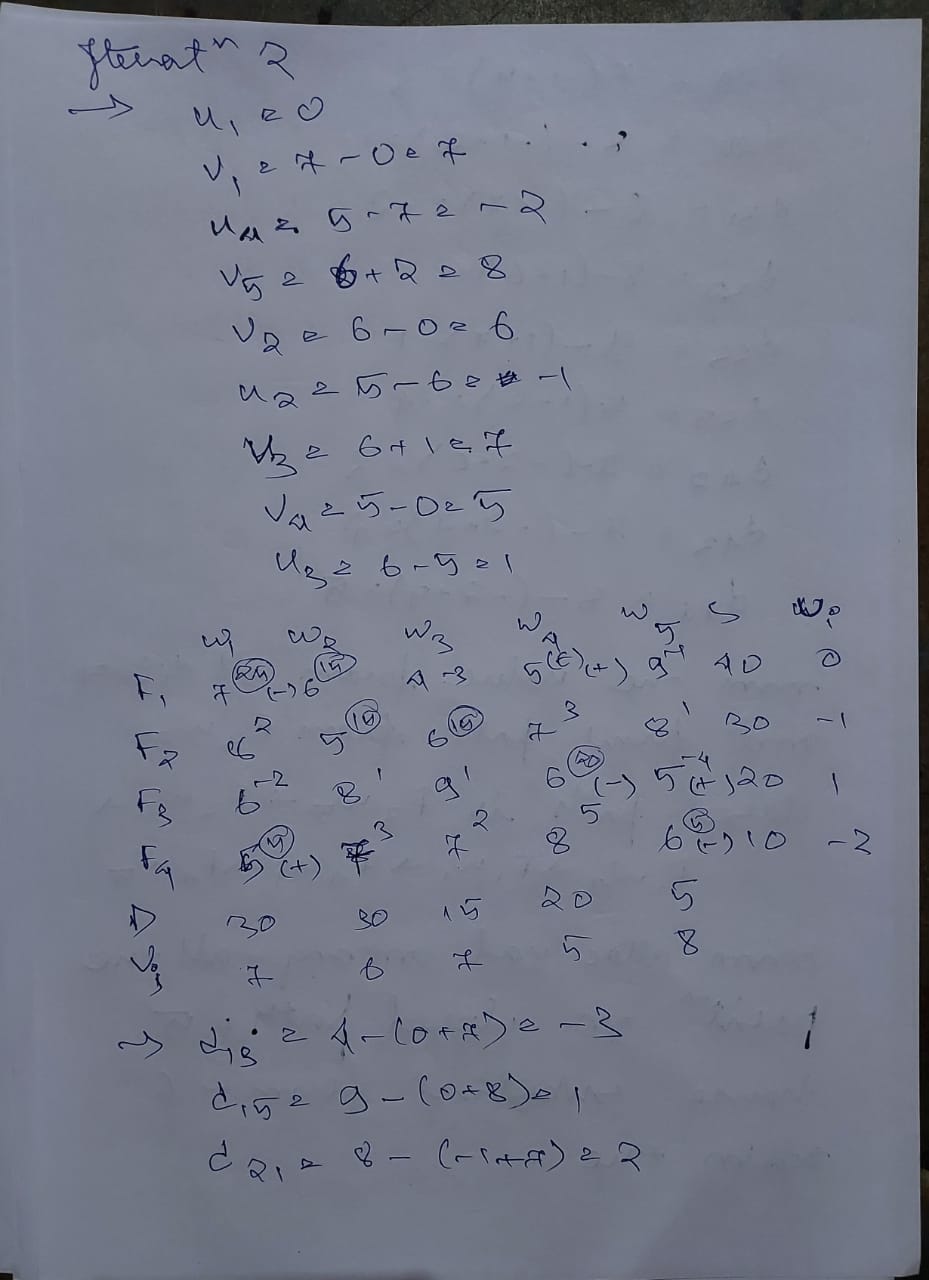 Iteratⁿ 2
→ u₁ = 0
v₁ = 7 - 0 = 7
u₄ = 5 - 7 = -2
v₅ = 6 + 2 = 8
v₂ = 6 - 0 = 6
u₂ = 5 - 6 = -1
v₃ = 6 + 1 = 7
v₄ = 5 - 0 = 5
u₃ = 6 - 5 = 1
W₁ W₂ W₃ W₄ W₅ S
F₁ 7 (-) 6 (15) 4 -3 5 (+) 9 40 0
F₂ 2 5 (15) 6 (15) 7 3 8 1 30 -1
F₃ 6 -2 8 1 9 1 6 (20) (-) 5 -4 (+) 20 1
F₄ 5 (5) (+) 7 3 7 2 8 5 6 (5) (-) 10 -2
D 30 30 15 20 5
Vj 7 6 7 5 8
→ d₁₃ = 4 - (0 + 7) = -3
d₁₅ = 9 - (0 + 8) = 1
d₂₁ = 8 - (-1 + 7) = 2